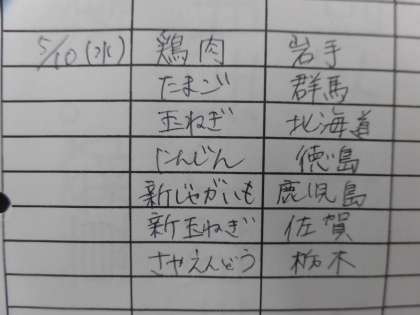 5/10(水) 鶏肉 岩手
たまご 群馬
玉ねぎ 北海道
にんじん 徳島
新じゃがいも 鹿児島
新玉ねぎ 佐賀
さやえんどう 栃木